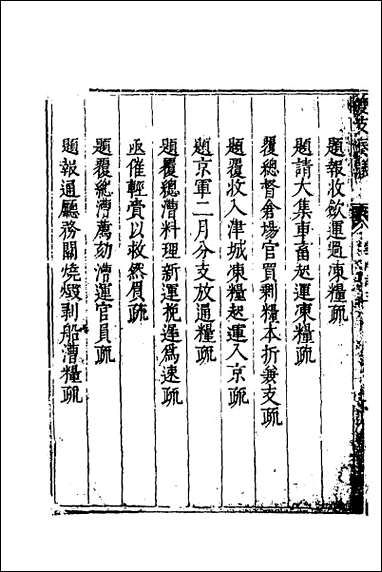 題報收飲運過凍糧疏
題請大集車畜起運凍糧疏
覆總督倉場官買剩糧本折兼支疏
題覆收入津城凍糧起運入京疏
題京軍二月分支放通糧疏
題覆總漕料理新運挽遲為速疏
亟催輕賫以救然眉疏
題覆總漕薦劾漕運官員疏
題報通廳務關燒燬剥船漕糧疏